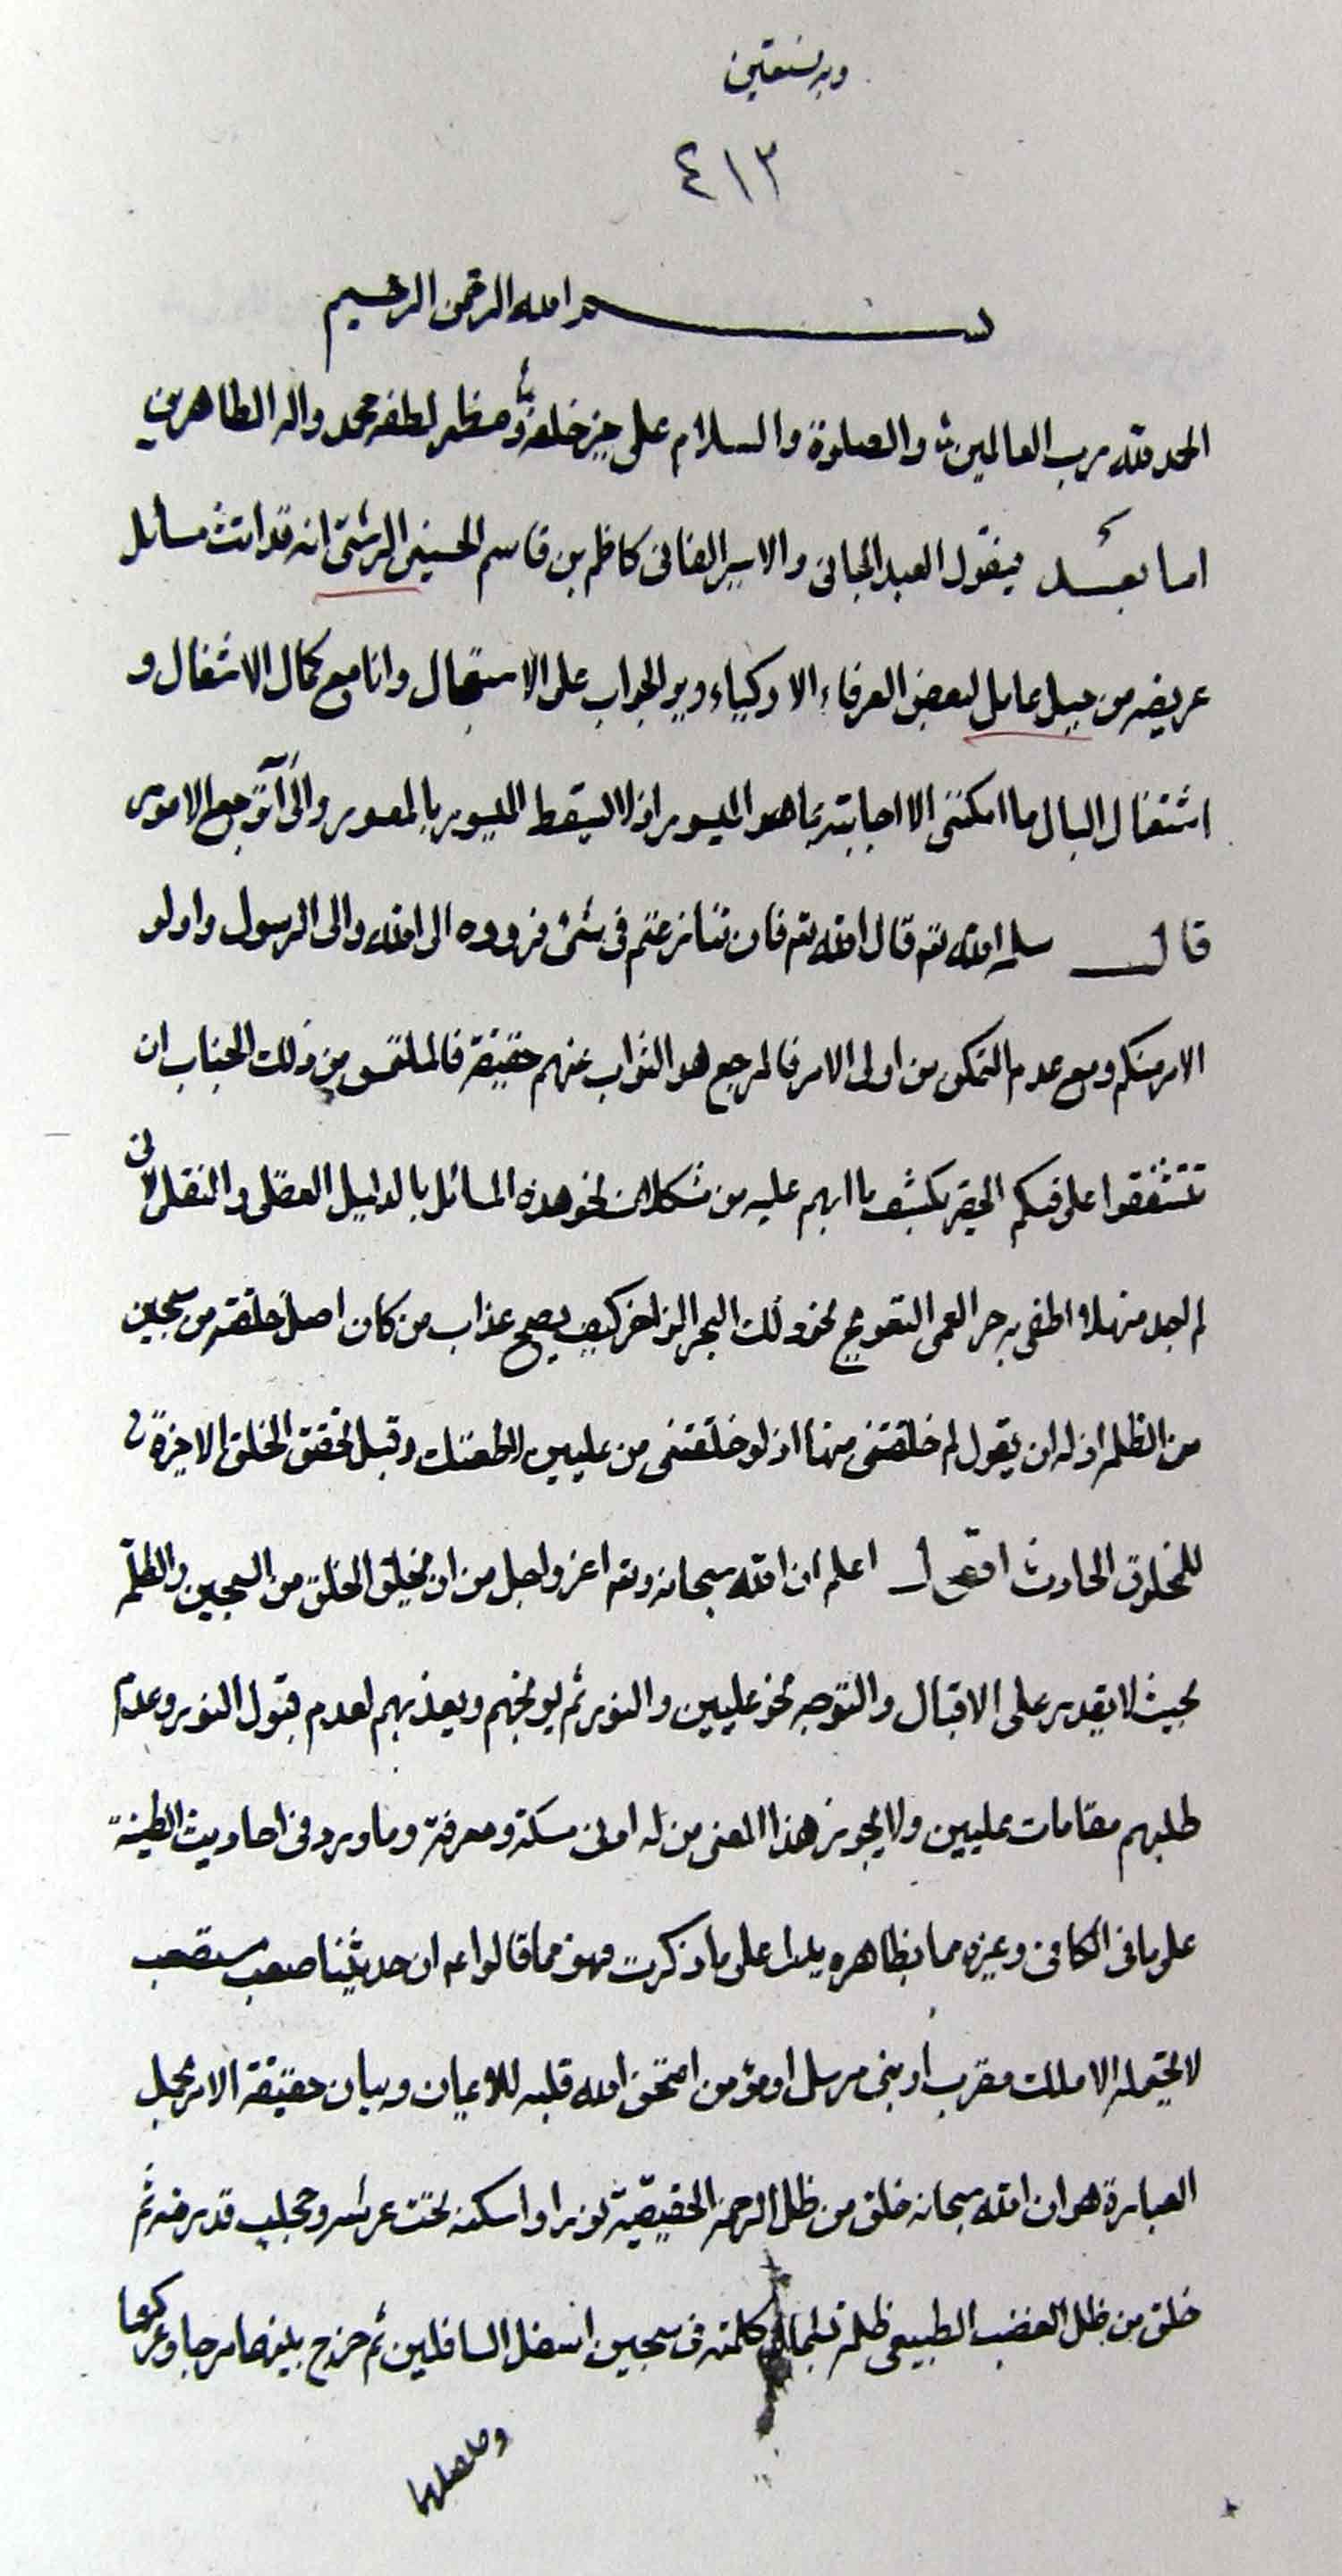 وبه نستعين
٤١٣
بسم الله الرحمن الرحيم
الحمد لله رب العالمين والصلوة والسلام على خير خلقه ومظهر لطفه محمد واله الطاهرين
اما بعد فيقول العبد الجانى والاسير الفانى كاظم بن قاسم الحسينى الرشتى انه قد اتت مسائل
عريضه من جبل عامل لبعض العرفاء الاذكياء ويريد الجواب على الاستعجال وانا مع كمال الاشغال و
اشتغال البال ما امكننى الا اجابته بما هو الميسور اذ لا يسقط الميسور بالمعسور والى الله ترجع الامور
قال سلمه الله تع قال الله تع فان تنازعتم فى شئ فردوه الى الله والى الرسول واولو
الامر منكم ومع عدم التمكن من اولى الامر فالمرجع هو النواب عنهم حقيقة فالملتمس من ذلك الجناب ان
تتشفقوا على فيكم الحقير بكشف ما ابهم عليه من مشكلات نحو هذه المسائل بالدليل العقلى والنقلى لانى
لم اجد منهلا اطفى به حر العمى التعويج نحو ذلك البحر الزاخر كيف يصح عذاب من كان اصل خلقته من سجين
من الظلمة اذ له ان يقول لم خلقتنى منها اذ لو خلقتنى من عليين لاطعتك وقبل تحقق الخلق لا خيرة
للمخلوق الحادث اقول اعلم ان الله سبحانه وتع اعز واجل من ان يخلق الخلق من السجين والظلمة
بحيث لا يقدر على الاقبال والتوجه نحو عليين والنور ثم يوبخهم ويعذبهم لعدم قبول النور وعدم
طلبهم مقامات عليين ولا يجوز هذا المعنى من له ادنى مسكة ومعرفة وما ورد فى احاديث الطينة
على ما فى الكافى وغيره مما بظاهره يدل على ما ذكرت فهو مما قالوا عم ان حديثنا صعب مستصعب
لا يحتمله الا ملك مقرب او نبى مرسل او مؤمن امتحن الله قلبه للايمان وبيان حقيقة الامر بمجمل
العبارة هو ان الله سبحانه خلق من ظل الرحمة الحقيقية نورا واسكنه تحت عرشه وحجاب قدرته ثم
خلق من ظل الغضب الطبيعى ظلمة كلمته فى سجين اسفل السافلين ثم مزج بينهما مزجا وعركهما
وصلصلهما